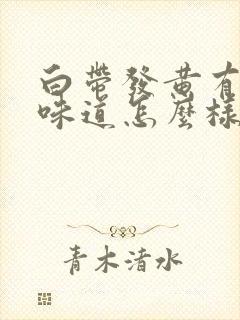 白帶發黃有
味道怎麼樣
青木渚水